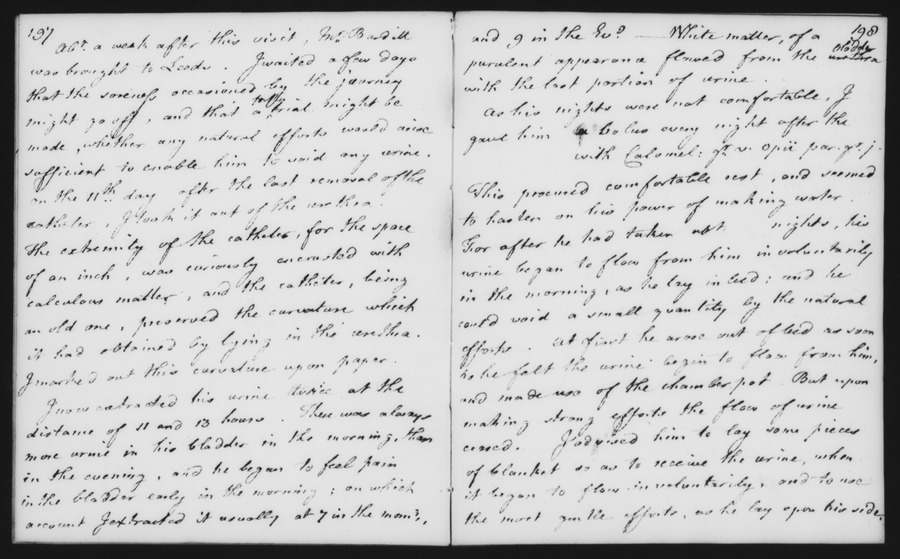 197
Abt. a week after this visit, Mr. Burdill
was brought to Leeds. I waited a few days
that the soreness occasioned by the journey
might go off, and that a fully trial might be
made, whether any natural efforts would arise
sufficient to enable him to void any urine.
on the 11th. day after the last removal of the
catheter, I took it out of the urethra.
The extremity of the catheter, for the space
of an inch, was curiously encrusted with
calculous matter, and the catheter, being
an old one, preserved the curvature which
it had obtained by lying in the urethra.
I marked out this curvature upon paper.
I now extracted his urine twice at the
distance of 11 and 13 hours. There was always
more urine in his bladder in the morning, than
in the evening, and he began to feel pain
in the bladder early in the morning; on which
account I extracted it usually at 7 in the morng.,
198
and 9 in the Evg. — White matter, of a
purulent appearance flowed from the bladder urethra
with the last portion of urine.
As his nights were not comfortable, I
gave him a bolus every night after the
with Calomel: gr. v. opii par. gr. j.
This procured comfortable rest, and seemed
to hasten on his power of making water.
For after he had taken abt. nights, his
urine began to flow from him involuntarily
in the morning, as he lay in bed; and he
could void a small quantity by the natural
efforts. At first he arose out of bed as soon
as he felt the urine begin to flow from him,
and made use of the chamber pot. But upon
making strong efforts the flow of urine
ceased. I advised him to lay some pieces
of blanket so as to receive the urine, when
it began to flow involuntarily, and to use
the most gentle efforts, as he lay upon his side.